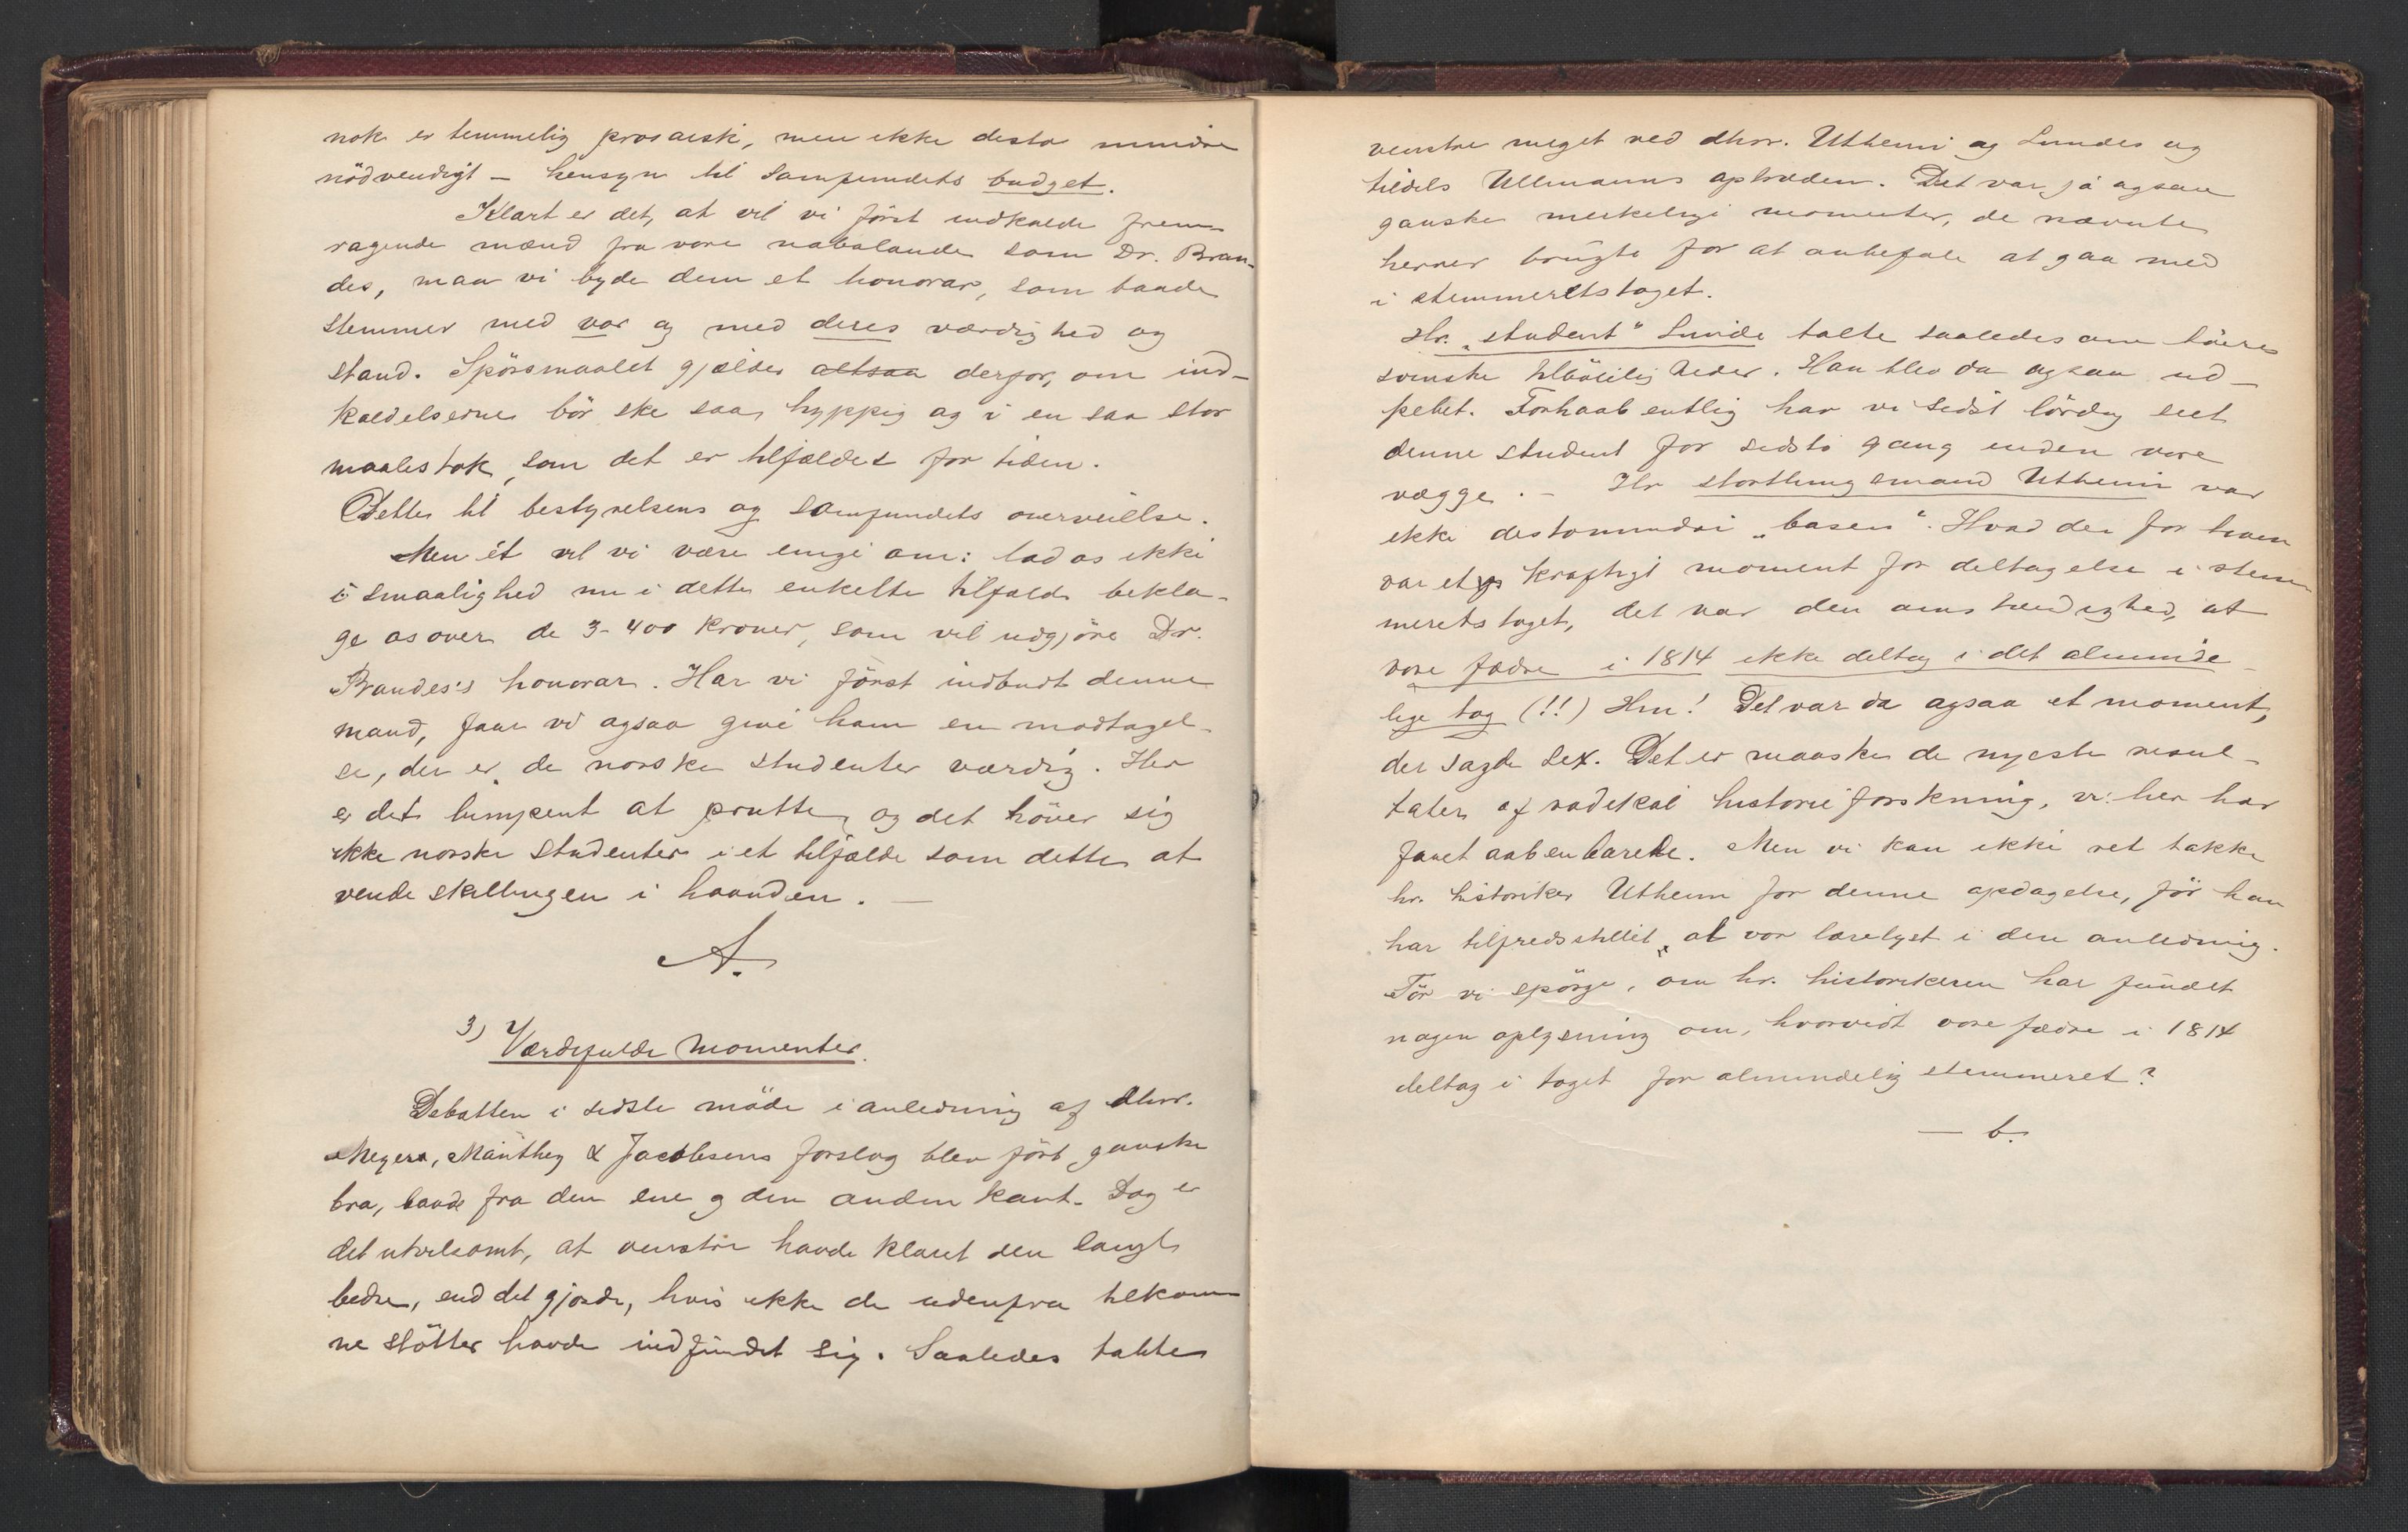 nok er temmelig prosaisk, men ikke desto mindre
nödvendigt – hensyn til samfundets budget.
Klart er det, at vil vi först indkalde frem-
ragende mænd fra vore nabolande som Dr. Bran-
des, maa vi byde dem et honorar, som baade
stemmer med vor og med deres værdighed og
stand. Spörsmaalet gjælder altsaa derfor, om ind-
kaldelserne bör ske saa hyppig og i en saa stor
maalestok, som det er tilfældet for tiden.
Dette til bestyrelsens og samfundets overveielse.
Men ét vil vi være enige om: lad os ikke
i smaalighed nu i dette enkelte tilfælde bekla-
ge os over de 3-400 kroner, som vil udgjöre Dr.
Brandes's honorar. Har vi först indbudt denne
mand, faar vi ogsaa give ham en modtagel-
se, der er de norske studenter værdig. Her
er det lumpent at prutte, og det höver sig
ikke norske studenter i et tilfælde som dette at
vende skillingen i haanden. –
A.
3) Værdifulde momenter.
Debatten i sidste möde i anledning af dhrr.
Meyers, Münthey & Jacobsens forslag blev fört ganske
bra, baade fra den ene og den anden kant. Dog er
det utvilsomt, at venstre havde klaret den langt
bedre, end det gjorde, hvis ikke de udenfra tilkom-
ne stötter havde indfundet sig. Saaledes tabte
venstre meget ved dhrr. Utheim og Lundes og
tildels Ullmanns optræden. Det var jo ogsaa
ganske merkelige momenter, de nævnte
herrer brugte for at anbefale at gaa med
i stemmeretstoget.
Hr. „student“ Lunde talte saaledes om höires
svenske tilböieligheder. Han blev da ogsaa ud-
pebet. Forhaabentlig har vi sidst lördag seet
denne student for sidste gang inden vore
vægge. – Hr storthingsmand Utheim var
ikke destomindre „basen“. Hvad der for ham
var et kraftigt moment for deltagelse i stem-
meretstoget, det var den omstændighed, at
vore fædre i 1814 ikke deltog i det alminde-
lige tog (!!) Hm! Det var da ogsaa et moment,
der sagde sex. Det er maaske de nyeste resul-
tater af radikal historieforskning, vi her har
faaet aabenbarede. Men vi kan ikke ret takke
hr. historiker Utheim for denne opdagelse, för han
har tilfredsstillet al vor lærelyst i den anledning.
Tör vi spörge, om hr. historikeren har fundet
nogen oplysning om, hvorvidt vore fædre i 1814
deltog i toget for almindelig stemmeret?
– b.